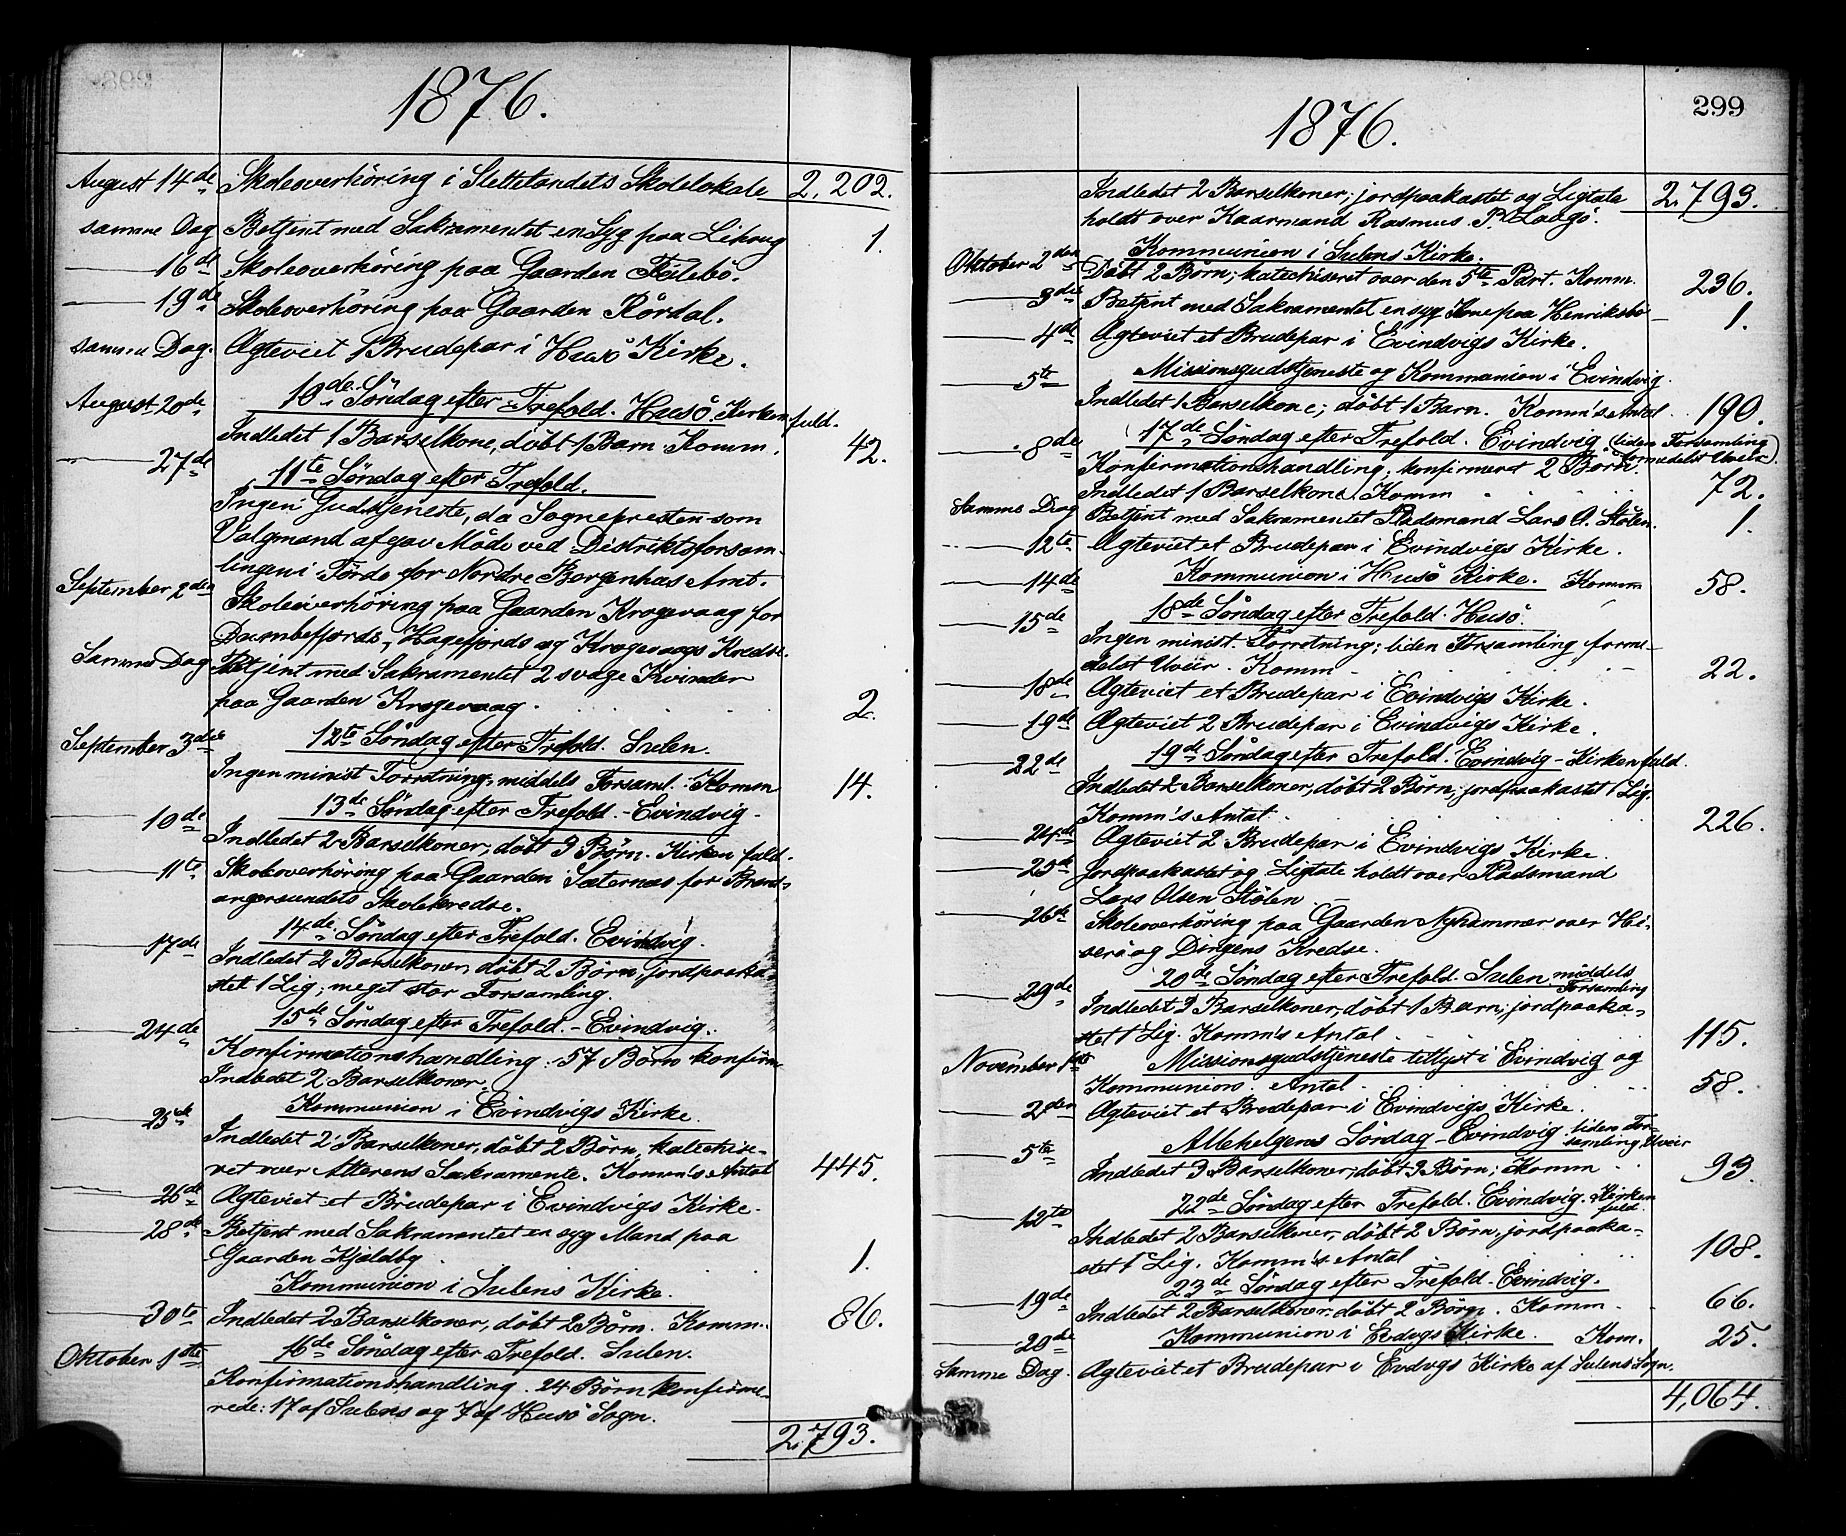 1876.
August 14de Skoleoverhöring i Slettelandets Skolelokale 2,202.
samme Dag Betjent med Sakramentet en Syg paa Likrug 1.
— 16de Skoleoverhöring paa Gaarden Fælebö.
— 19de Skoleoverhöring paa Gaarden Rördal.
samme Dag. Ægteviet 1 Brudepar i Husö Kirke.
August 20de 10de Söndag efter Trefold. Husö. Kirken fuld.
Indledet 1 Barselkone, döbt 1 Barn. Komm. 42.
— 27de 11te Söndag efter Trefold.
Ingen Gudstjeneste, da Sognepresten som
Valgmand afgav Möde ved Distriktsforsam-
lingen i Förde for Nordre Bergenhus Amt.
September 2den Skoleoverhöring paa Gaarden Krogevaag for
Dumbefjords, Hagefjords og Krogevaags Kredse.
Samme Dag Betjent med Sakramentet 2 svage Kvinder
paa Gaarden Krogevaag. 2.
September 3die 12te Söndag efter Trefold. Sulen.
Ingen minist Forretning; middels Forsaml. Komm 14.
13de Söndag efter Trefold. - Evindvig.
— 10de Indledet 2 Barselkoner, döbt 3 Börn. Kirken fuld.
— 11te Skoleoverhöring paa Gaarden Sæternes for Brand-
angersundets Skolekredse.
14de Söndag efter Trefold. Evindvig.
— 17de Indledet 2 Barselkoner, döbt 2 Börn, jordpaaka-
stet 1 Lig; meget stor Forsamling.
15de Söndag efter Trefold. - Evindvig.
— 24de Konfirmationshandling. 57 Börn konfirm.
Indledet 2 Barselkoner.
Kommunion i Evindvigs Kirke.
— 25de Indledet 2 Barselkoner, döbt 2 Börn, katechise-
ret over Alterens Sakramente. Komm's Antal 445.
— 26de Ægteviet et Brudepar i Evindvigs Kirke.
— 28de Betjent med Sakramentet en syg Mand paa
Gaarden Kjeldby 1.
Kommunion i Sulens Kirke.
— 30te Indledet 2 Barselkoner, döbt 2 Börn. Komm. 86.
Oktober 1ste 16de Söndag efter Trefold. Sulen.
Konfirmationshandling. 24 Börn konfirme-
rede: 17 af Sulens og 7 af Husö Sogn.
2,793.
299
1876.
Indledet 2 Barselkoner; jordpaakastet og Ligtale 2,793.
holdt over Kaarmand Rasmus P. Laagö.
Kommunion i Sulens Kirke.
Oktober 2den Döbt 2 Börn; katechiseret over den 5te Part. Komm. 236.
— 3die Betjent med Sakramentet en syg Kone paa Henriksbö 1.
— 4de Ægteviet et Brudepar i Evindvigs Kirke.
— 5te Missionsgudstjeneste og Kommunion i Evindvig.
Indledet 1 Barselkone; döbt 1 Barn. Komm's Antal 190.
— 8de 17de Söndag efter Trefold. Evindvig (liden Forsamling
formedelst Uveir).
Konfirmationshandling; konfirmeret 2 Börn.
Indledet 1 Barselkone. Komm 72.
Samme Dag Betjent med Sakramentet Pladsmand Lars O. Stölen. 1.
— 12te Ægteviet et Brudepar i Evindvigs Kirke.
— 14de Kommunion i Husö Kirke. Komm 58.
— 15de 18de Söndag efter Trefold. Husö.
Ingen minist. Forretning; liden Forsamling forme-
delst Uveir. Komm 22.
— 18de Ægteviet et Brudepar i Evindvigs Kirke.
— 19de Ægteviet 2 Brudepar i Evindvigs Kirke.
— 22de 19de Söndag efter Trefold. Evindvig - Kirken fuld.
Indledet 2 Barselkoner, döbt 2 Börn; jordpaakastet 1 Lig.
Komm's Antal. 226.
— 24de Ægteviet 2 Brudepar i Evindvigs Kirke.
— 25de Jordpaakastet og Ligtale holdt over Pladsmand
Lars Olsen Stölen.
— 26de Skoleoverhöring paa Gaarden Nyhammer over Hi-
serö og Dingens Kredse.
— 29de 20de Söndag efter Trefold. Sulen. middels
Forsamling
Indledet 3 Barselkoner, döbt 1 Barn; jordpaaka-
stet 1 Lig. Komm's Antal 115.
November 1ste Missionsgudstjeneste tillyst i Evindvig og
Kommunion. Antal 58.
— 2den Ægteviet et Brudepar i Evindvigs Kirke.
— 5te Allehelgens Söndag - Evindvig. liden For-
samling, Uveir
Indledet 3 Barselkoner; döbt 3 Börn; Komm 93.
— 12te 22de Söndag efter Trefold. Evindvig. Kirken
fuld.
Indledet 2 Barselkoner, döbt 2 Börn, jordpaaka-
stet 1 Lig. Komm's Antal 108.
23de Söndag efter Trefold - Evindvig.
— 19de Indledet 2 Barselkoner: döbt 2 Börn. Komm 66.
— 20de Kommunion i Evdvgs Kirke. Kom. 25.
Samme Dag. Ægteviet et Brudepar i Evdvgs Kirke af Sulens Sogn.
4,064.